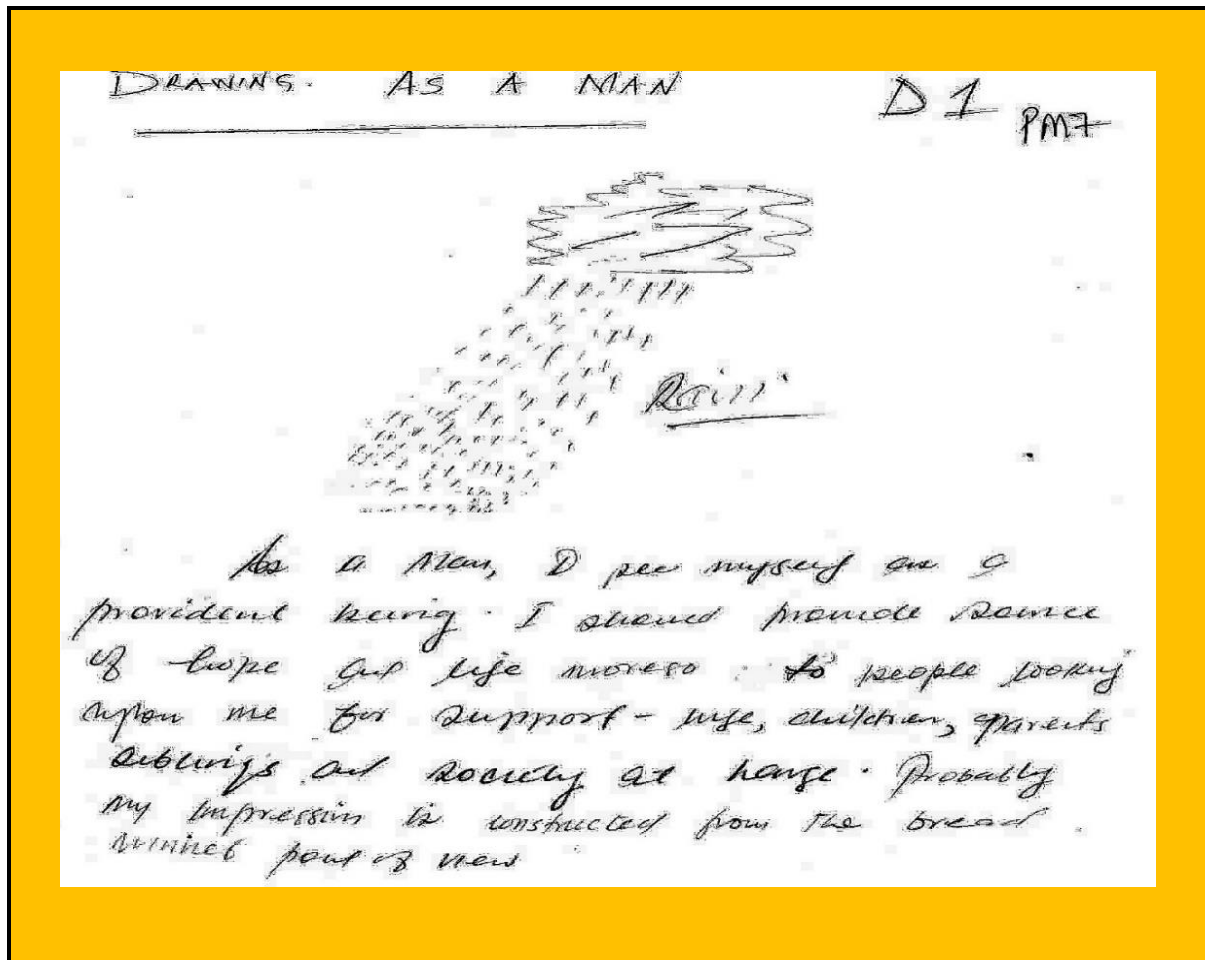 DRAWING. AS A MAN
D1 PM7
Rain
As a Man, I see myself as a
provident being. I should provide source
of hope and life moreso to people looking
upon me for support - wife, children, parents
siblings and society at large. Probably
my impression is constructed from the bread
winner point of view